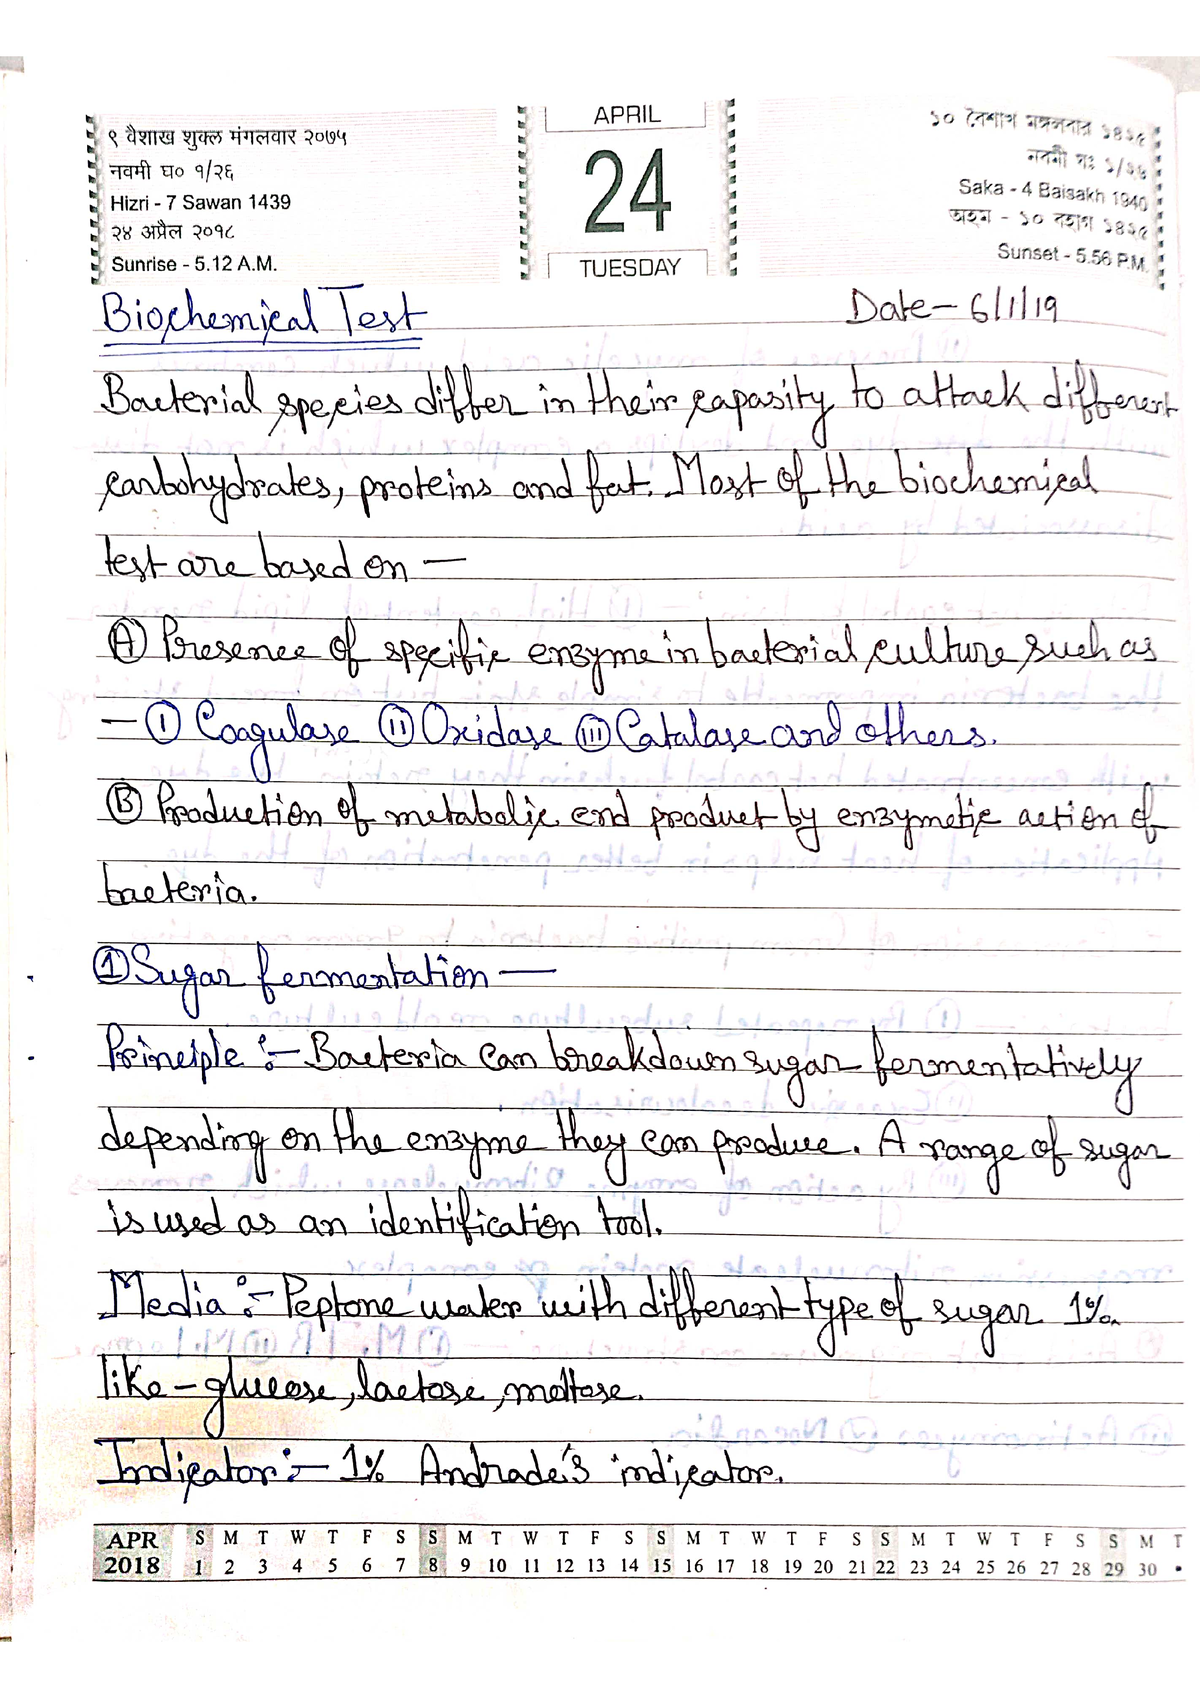 ९ वैशाख शुक्ल मंगलवार २०७५
नवमी घ० १/२६
Hizri - 7 Sawan 1439
२४ अप्रैल २०१८
Sunrise - 5.12 A.M.
APRIL
24
TUESDAY
১০ বৈশাখ মঙ্গলবার ১৪২৫
নবমী ঘঃ ১/২৬
Saka - 4 Baisakh 1940
১০ বহাগ ১৪২৫
Sunset - 5.56 P.M.
Biochemical Test
Date - 6/1/19
Bacterial species differ in their capasity to attack different
carbohydrates, proteins and fat. Most of the biochemical
test are based on —
(A) Presence of specific enzyme in bacterial culture such as
— (i) Coagulase (ii) Oxidase (iii) Catalase and others.
(B) Production of metabolic end product by enzymetic action of
bacteria.
(1) Sugar fermentation —
Principle :- Bacteria can breakdown sugar fermentatively
depending on the enzyme they can produce. A range of sugar
is used as an identification tool.
Media :- Peptone water with different type of sugar 1%
like - glucose, lactose, maltose.
Indicator :- 1% Andrade's indicator.
APR S M T W T F S S M T W T F S S M T W T F S S M T W T F S S M T
2018 1 2 3 4 5 6 7 8 9 10 11 12 13 14 15 16 17 18 19 20 21 22 23 24 25 26 27 28 29 30 •